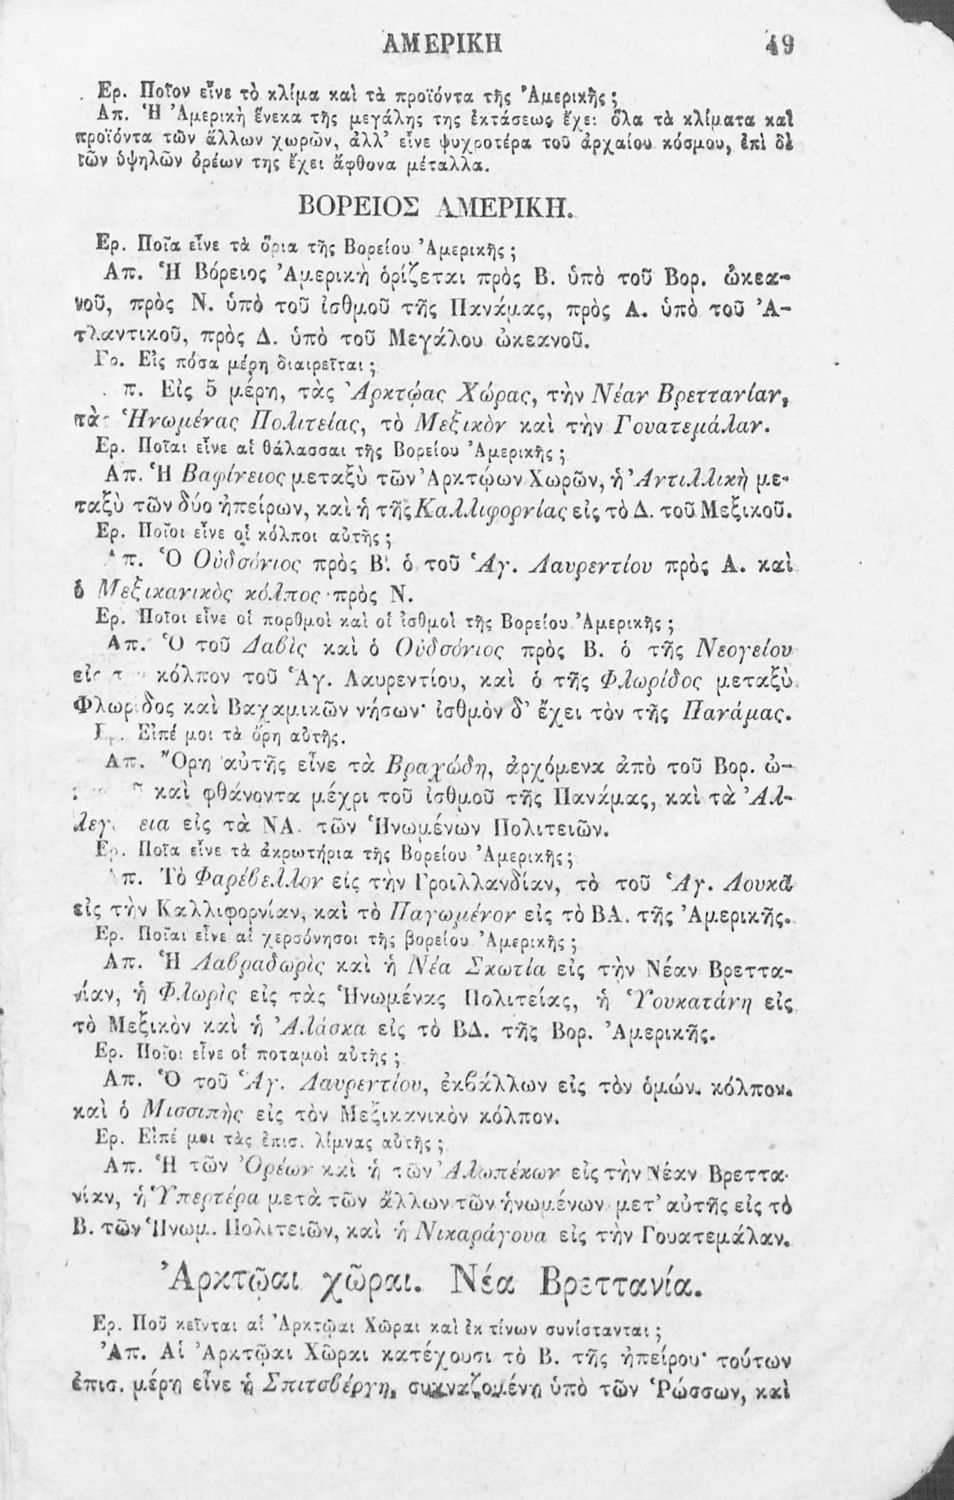 ἈΜΕΡΙΚΗ 49
Ερ. Ποῖον εἶνε τὸ κλίμα καὶ τὰ προϊόντα τῆς Ἀμερικῆς ;
Απ. Ἡ Ἀμερικὴ ἕνεκα τῆς μεγάλης της ἐκτάσεως ἔχει ὅλα τὰ κλίματα καὶ
προϊόντα τῶν ἄλλων χωρῶν, ἀλλ’ εἶνε ψυχροτέρα τοῦ ἀρχαίου κόσμου, ἐπὶ δὲ
τῶν ὑψηλῶν ὀρέων της ἔχει ἄφθονα μέταλλα.
ΒΟΡΕΙΟΣ ΑΜΕΡΙΚΗ.
Ερ. Ποῖα εἶνε τὰ ὅρια τῆς Βορείου Ἀμερικῆς ;
Απ. Ἡ Βόρειος Ἀμερικὴ ὁρίζεται πρὸς Β. ὑπὸ τοῦ Βορ. ὠκεα-
νοῦ, πρὸς Ν. ὑπὸ τοῦ ἰσθμοῦ τῆς Πανάμας, πρὸς Α. ὑπὸ τοῦ Ἀ-
τλαντικοῦ, πρὸς Δ. ὑπὸ τοῦ Μεγάλου ὠκεανοῦ.
Ερ. Εἰς πόσα μέρη διαιρεῖται ;
π. Εἰς 5 μέρη, τὰς Ἀρκτῴας Χώρας, τὴν Νέαν Βρεττανίαν,
τὰς Ἡνωμένας Πολιτείας, τὸ Μεξικὸν καὶ τὴν Γουατεμάλαν.
Ερ. Ποῖαι εἶνε αἱ θάλασσαι τῆς Βορείου Ἀμερικῆς ;
Απ. Ἡ Βαφίνειος μεταξὺ τῶν Ἀρκτῴων Χωρῶν, ἡ Ἀντιλλικὴ με-
ταξὺ τῶν δύο ἠπείρων, καὶ ἡ τῆς Καλλιφορνίας εἰς τὸ Δ. τοῦ Μεξικοῦ.
Ερ. Ποῖοι εἶνε οἱ κόλποι αὐτῆς ;
Απ. Ὁ Οὐδσόνιος πρὸς Β. ὁ τοῦ Ἁγ. Λαυρεντίου πρὸς Α. καὶ
ὁ Μεξικανικὸς κόλπος πρὸς Ν.
Ερ. Ποῖοι εἶνε οἱ πορθμοὶ καὶ οἱ ἰσθμοὶ τῆς Βορείου Ἀμερικῆς ;
Απ. Ὁ τοῦ Δαβὶς καὶ ὁ Οὐδσόνιος πρὸς Β. ὁ τῆς Νεογείου
εἰς κόλπον τοῦ Ἁγ. Λαυρεντίου, καὶ ὁ τῆς Φλωρίδος μεταξὺ
Φλωρίδος καὶ Βαχαμικῶν νήσων· ἰσθμὸν δ’ ἔχει τὸν τῆς Πανάμας.
Εἰπέ μοι τὰ ὄρη αὐτῆς.
Απ. Ὄρη αὐτῆς εἶνε τὰ Βραχώδη, ἀρχόμενα ἀπὸ τοῦ Βορ. ὠ-
καὶ φθάνοντα μέχρι τοῦ ἰσθμοῦ τῆς Πανάμας, καὶ τὰ Ἀλ-
λεγ εια εἰς τὰ ΝΑ. τῶν Ἡνωμένων Πολιτειῶν.
Ερ. Ποῖα εἶνε τὰ ἀκρωτήρια τῆς Βορείου Ἀμερικῆς ;
Απ. Τὸ Φαρέβελλον εἰς τὴν Γροιλλανδίαν, τὸ τοῦ Ἁγ. Λουκᾶ
εἰς τὴν Καλλιφορνίαν, καὶ τὸ Παγωμένον εἰς τὸ ΒΑ. τῆς Ἀμερικῆς.
Ερ. Ποῖαι εἶνε αἱ χερσόνησοι τῆς βορείου Ἀμερικῆς ;
Απ. Ἡ Λαβραδωρὶς καὶ ἡ Νέα Σκωτία εἰς τὴν Νέαν Βρεττα-
νίαν, ἡ Φλωρὶς εἰς τὰς Ἡνωμένας Πολιτείας, ἡ Ὑουκατάνη εἰς
τὸ Μεξικὸν καὶ ἡ Ἀλάσκα εἰς τὸ ΒΔ. τῆς Βορ. Ἀμερικῆς.
Ερ. Ποῖοι εἶνε οἱ ποταμοὶ αὐτῆς ;
Απ. Ὁ τοῦ Ἁγ. Λαυρεντίου, ἐκβάλλων εἰς τὸν ὁμών. κόλπον.
καὶ ὁ Μισσιπὴς εἰς τὸν Μεξικανικὸν κόλπον.
Ερ. Εἰπέ μοι τὰς ἐπισ. λίμνας αὐτῆς ;
Απ. Ἡ τῶν Ὀρέων καὶ ἡ τῶν Ἀλωπέκων εἰς τὴν Νέαν Βρεττα-
νίαν, ἡ Ὑπερτέρα μετὰ τῶν ἄλλων τῶν ἡνωμένων μετ’ αὐτῆς εἰς τὸ
Β. τῶν Ἡνωμ. Πολιτειῶν, καὶ ἡ Νικαράγουα εἰς τὴν Γουατεμάλαν.
Ἀρκτῷαι χῶραι. Νέα Βρεττανία.
Ερ. Ποῦ κεῖνται αἱ Ἀρκτῷαι Χῶραι καὶ ἐκ τίνων συνίστανται ;
Ἀπ. Αἱ Ἀρκτῷαι Χῶραι κατέχουσι τὸ Β. τῆς ἠπείρου· τούτων
ἐπισ. μέρη εἶνε ἡ Σπιτσβέργη, συχναζομένη ὑπὸ τῶν Ῥώσσων, καὶ